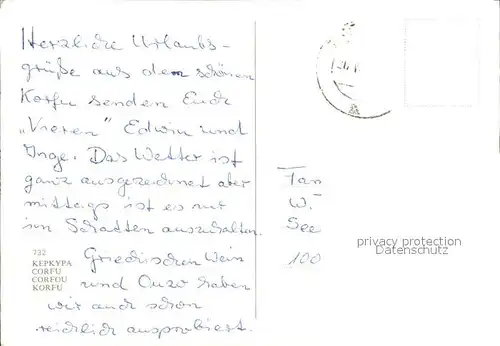 Herzliche Urlaubs-
grüße aus dem schönen
Korfu senden Euch
„Vieren" Edwin und
Inge. Das Wetter ist
ganz ausgezeichnet aber
mittags ist es nur
im Schatten auszuhalten.
Griechischen Wein
und Ouzo haben
wir auch schon
reichlich ausprobiert.
732
ΚΕΡΚΥΡΑ
CORFU
CORFOU
KORFU
Fan
W.
See
100
privacy protection
Datenschutz